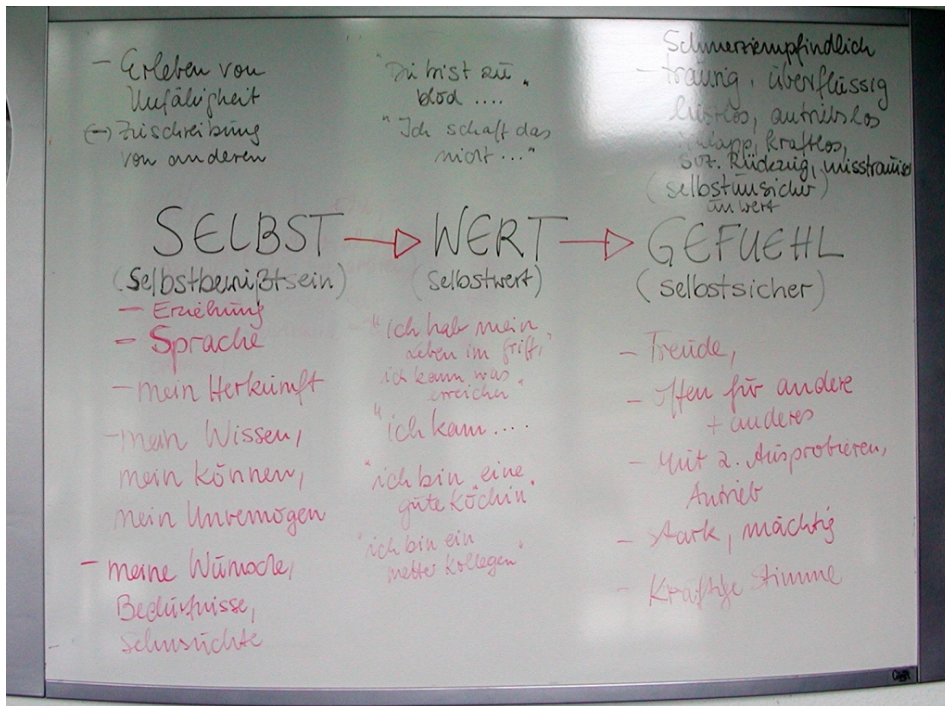 - Erleben von
Unfähigkeit
(-) Zuschreibung
von anderen
"Du bist zu
blöd .... "
"Ich schaff das
nicht ..."
Schmerzempfindlich
- traurig, überflüssig
lustlos, antriebslos
schlapp, kraftlos,
soz. Rückzug, misstrauisch
(selbstunsicher)
unwert
SELBST → WERT → GEFUEHL
(Selbstbewußtsein)
(selbstwert)
(selbstsicher)
- Erziehung
- Sprache
- mein Herkunft
- mein Wissen,
mein können,
mein Unvermögen
- meine Wünsche,
Bedürfnisse,
- Sehnsüchte
"ich hab mein
Leben im Griff,"
ich kann was
erreichen"
"ich kann ....
"ich bin eine
gute Köchin"
"ich bin ein
netter Kollegen"
- Freude,
- offen für andere
+ anderes
- Mut z. Ausprobieren,
Antrieb
- stark, mächtig
- Kräftige Stimme